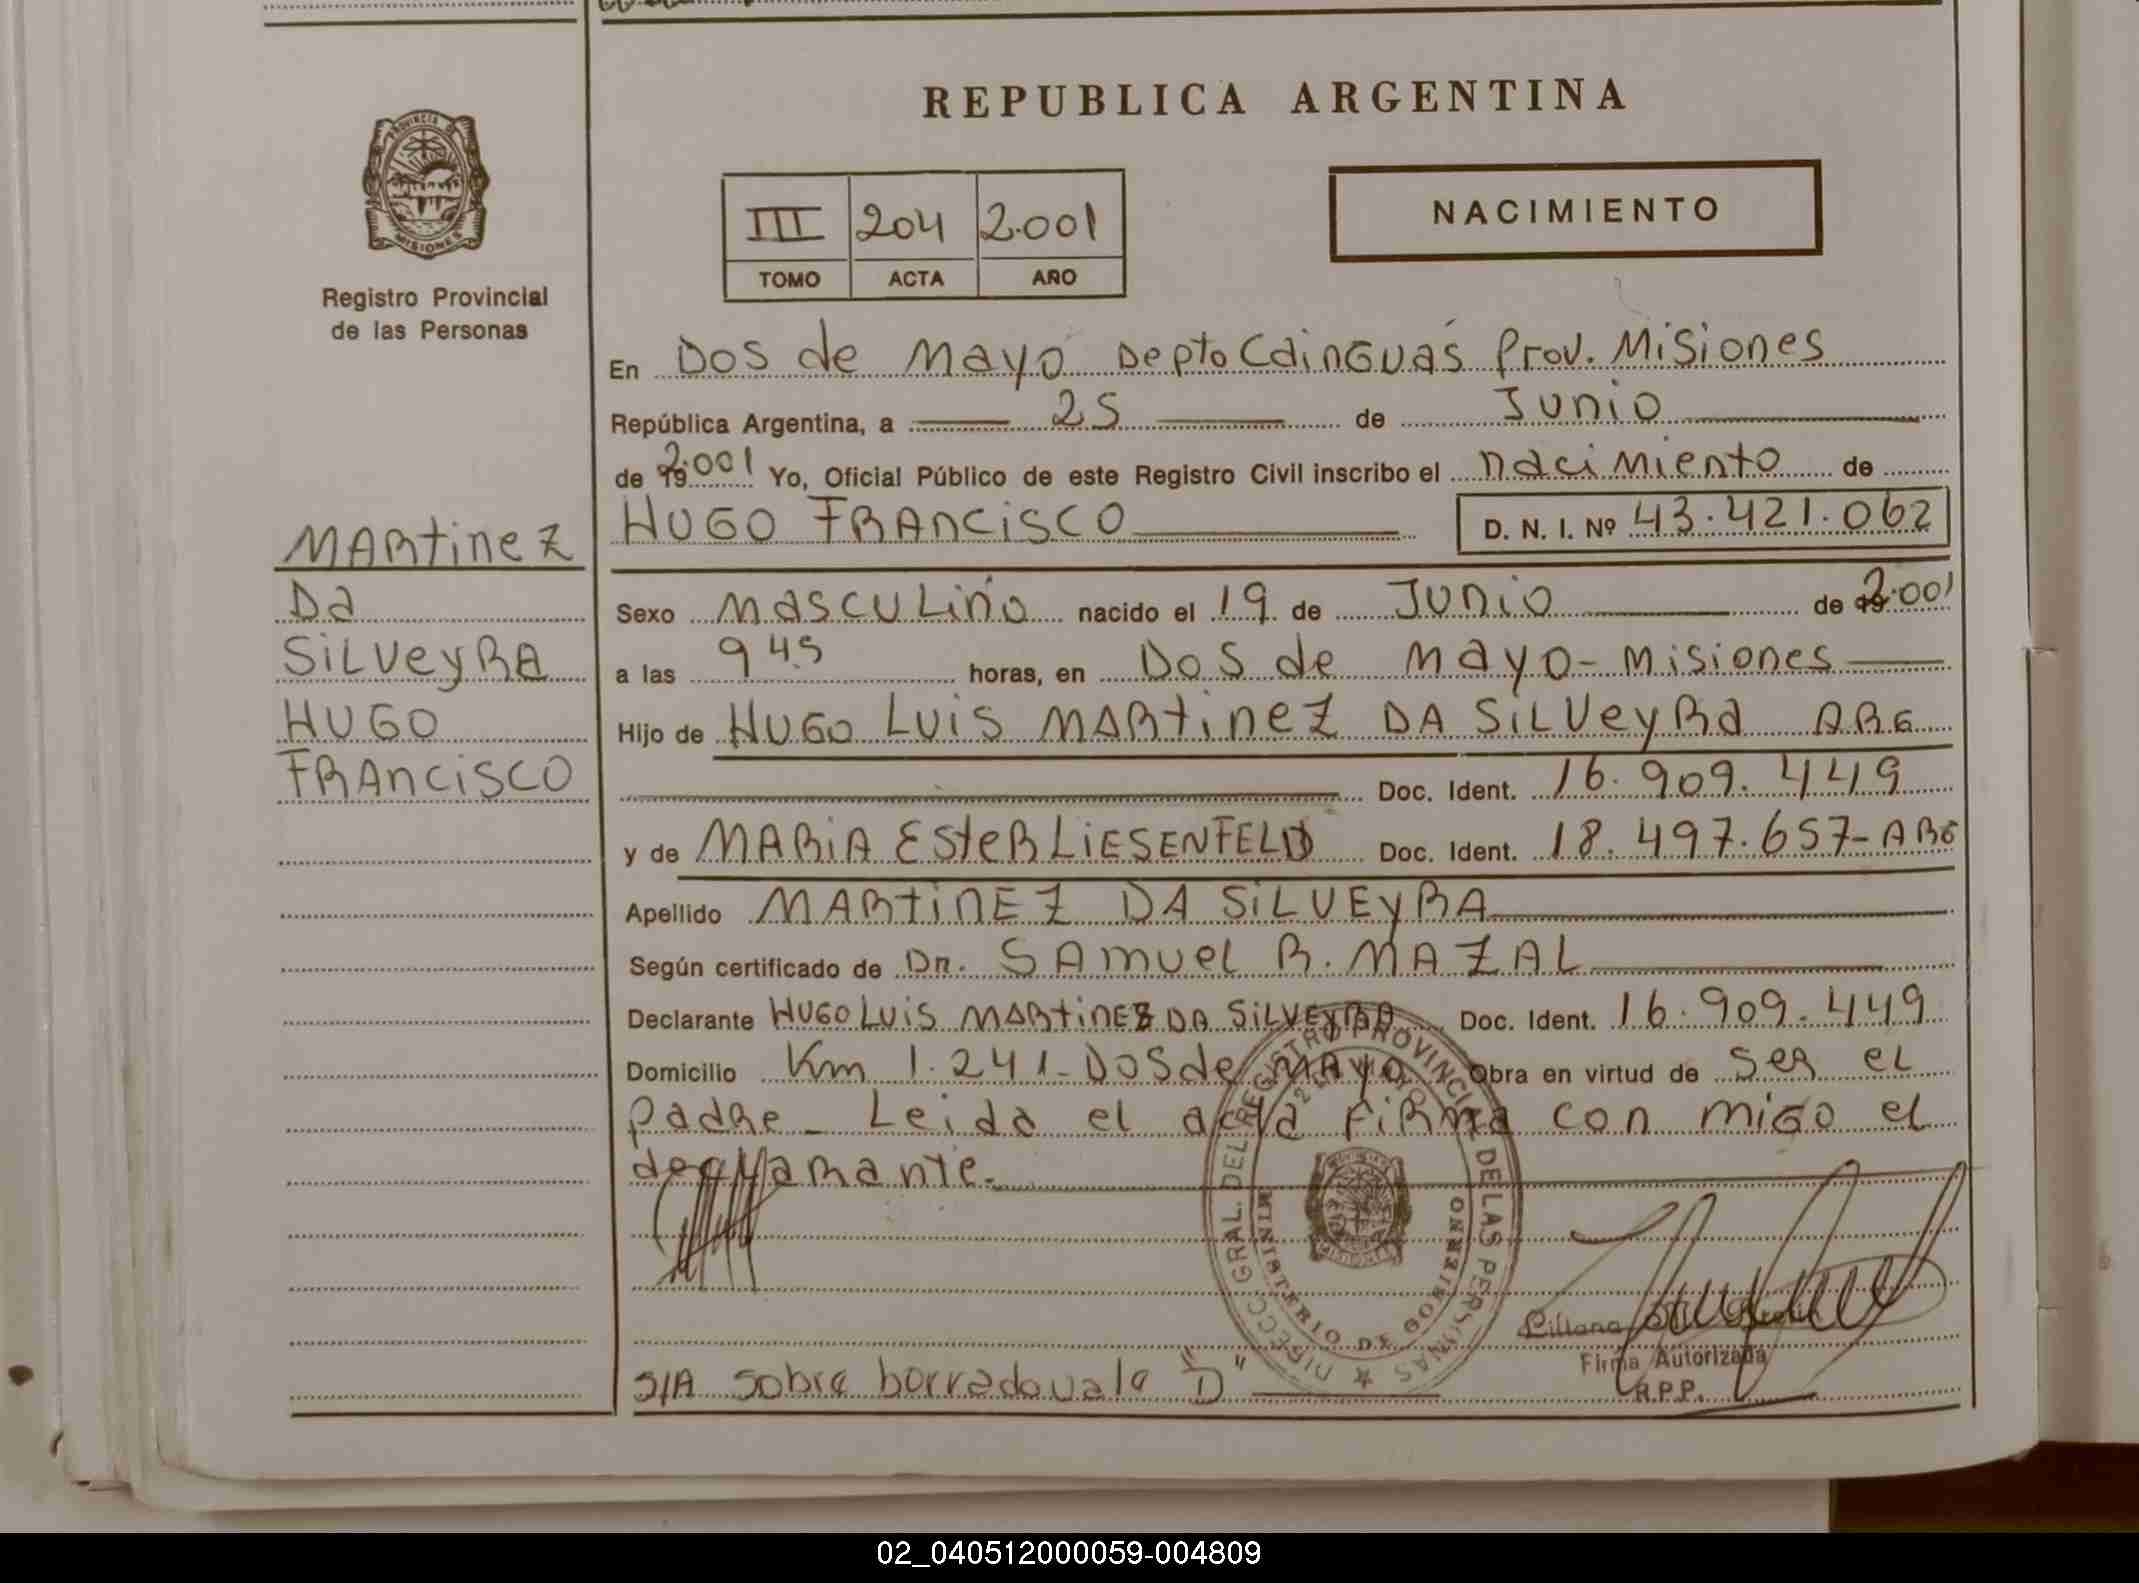 REPUBLICA ARGENTINA
PROVINCIA DE
MISIONES
Registro Provincial
de las Personas
III 204 2.001
TOMO ACTA AÑO
NACIMIENTO
En Dos de Mayo Depto Cainguás Prov. Misiones
República Argentina, a 25 de Junio
de 19 2.001 Yo, Oficial Público de este Registro Civil inscribo el nacimiento de
HUGO FRANCISCO D. N. I. Nº 43.421.062
Sexo Masculino nacido el 19 de Junio de 19 2.001
a las 9 45 horas, en Dos de Mayo - Misiones
Hijo de HUGO LUIS MARTINEZ DA SILVEYRA ARG
Doc. Ident. 16.909.449
y de MARIA ESTER LIESENFELD Doc. Ident. 18.497.657-ARG
Apellido MARTINEZ DA SILVEYRA
Según certificado de Dr. SAMUEL R. MAZAL
Declarante HUGO LUIS MARTINEZ DA SILVEYRA Doc. Ident. 16.909.449
Domicilio Km 1.241 - Dos de Mayo Obra en virtud de ser el
padre - Leida el acta firma con migo el
declarante.
S/A sobre borrado vale "D"
MARTINEZ
DA
SILVEYRA
HUGO
FRANCISCO
DIRECC. GRAL. DEL REGISTRO PROVINCIAL DE LAS PERSONAS
MINISTERIO DE GOBIERNO
Liliana
Firma Autorizada
R.P.P.
02_040512000059-004809